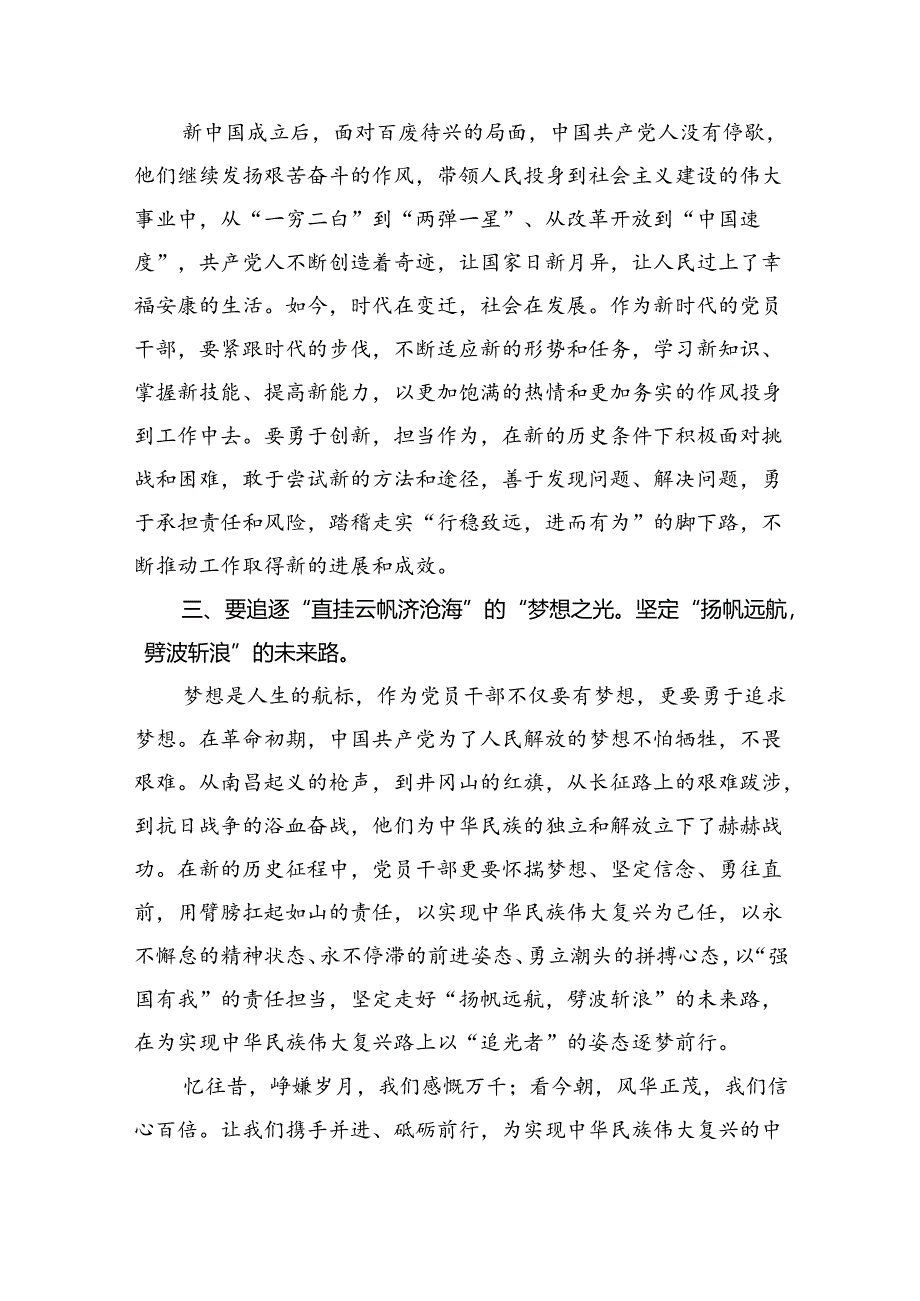 新中国成立后，面对百废待兴的局面，中国共产党人没有停歇，
他们继续发扬艰苦奋斗的作风，带领人民投身到社会主义建设的伟大
事业中，从“一穷二白”到“两弹一星”、从改革开放到“中国速
度”，共产党人不断创造着奇迹，让国家日新月异，让人民过上了幸
福安康的生活。如今，时代在变迁，社会在发展。作为新时代的党员
干部，要紧跟时代的步伐，不断适应新的形势和任务，学习新知识、
掌握新技能、提高新能力，以更加饱满的热情和更加务实的作风投身
到工作中去。要勇于创新，担当作为，在新的历史条件下积极面对挑
战和困难，敢于尝试新的方法和途径，善于发现问题、解决问题，勇
于承担责任和风险，踏稽走实“行稳致远，进而有为”的脚下路，不
断推动工作取得新的进展和成效。
三、要追逐“直挂云帆济沧海”的“梦想之光。坚定“扬帆远航，
劈波斩浪”的未来路。
梦想是人生的航标，作为党员干部不仅要有梦想，更要勇于追求
梦想。在革命初期，中国共产党为了人民解放的梦想不怕牺牲，不畏
艰难。从南昌起义的枪声，到井冈山的红旗，从长征路上的艰难跋涉，
到抗日战争的浴血奋战，他们为中华民族的独立和解放立下了赫赫战
功。在新的历史征程中，党员干部更要怀揣梦想、坚定信念、勇往直
前，用臂膀扛起如山的责任，以实现中华民族伟大复兴为己任，以永
不懈怠的精神状态、永不停滞的前进姿态、勇立潮头的拼搏心态，以“强
国有我”的责任担当，坚定走好“扬帆远航，劈波斩浪”的未来路，
在为实现中华民族伟大复兴路上以“追光者”的姿态逐梦前行。
忆往昔，峥嫌岁月，我们感慨万千；看今朝，风华正茂，我们信
心百倍。让我们携手并进、砥砺前行，为实现中华民族伟大复兴的中